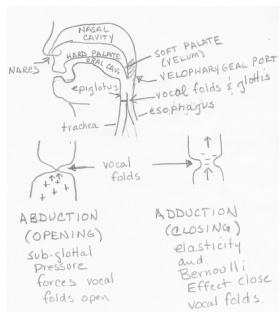 NASAL
CAVITY
HARD PALATE
ORAL CAV.
NARES
SOFT PALATE
(VELUM)
VELOPHARYGEAL PORT
epiglotus
vocal folds & glottis
esophagus
trachea
vocal
folds
ABDUCTION
(OPENING)
sub-glottal
Pressure
forces vocal
folds open
ADDUCTION
(CLOSING)
elasticity
and
Bernoulli
Effect close
vocal folds.